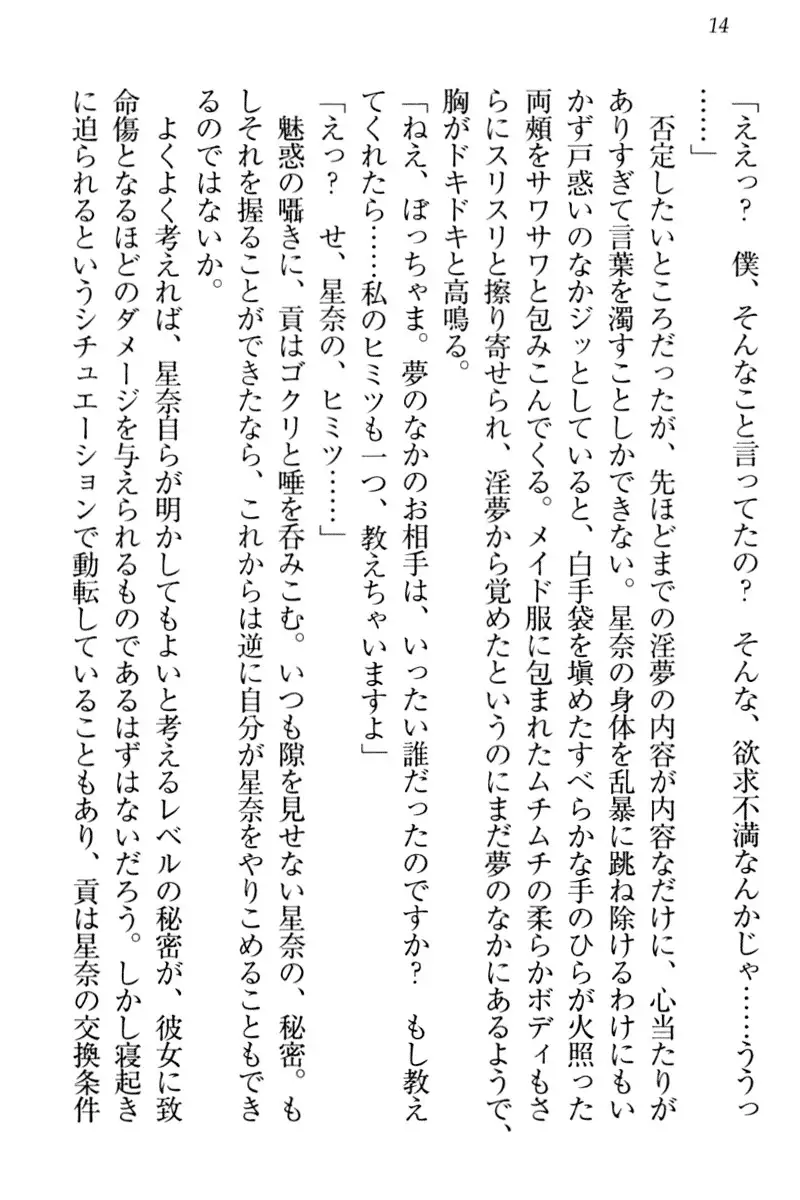 14
「ええっ?　僕、そんなこと言ってたの?　そんな、欲求不満なんかじゃ……ううっ
……」
　否定したいところだったが、先ほどまでの淫夢の内容が内容なだけに、心当たりが
ありすぎて言葉を濁すことしかできない。星奈の身体を乱暴に跳ね除けるわけにもい
かず戸惑いのなかジッとしていると、白手袋を填めたすべらかな手のひらが火照った
両頰をサワサワと包みこんでくる。メイド服に包まれたムチムチの柔らかボディもさ
らにスリスリと擦り寄せられ、淫夢から覚めたというのにまだ夢のなかにあるようで、
胸がドキドキと高鳴る。
「ねえ、ぼっちゃま。夢のなかのお相手は、いったい誰だったのですか?　もし教え
てくれたら……私のヒミツも一つ、教えちゃいますよ」
「えっ?　せ、星奈の、ヒミツ……」
　魅惑の囁きに、貢はゴクリと唾を呑みこむ。いつも隙を見せない星奈の、秘密。も
しそれを握ることができたなら、これからは逆に自分が星奈をやりこめることもでき
るのではないか。
　よくよく考えれば、星奈自らが明かしてもよいと考えるレベルの秘密が、彼女に致
命傷となるほどのダメージを与えられるものであるはずはないだろう。しかし寝起き
に迫られるというシチュエーションで動転していることもあり、貢は星奈の交換条件